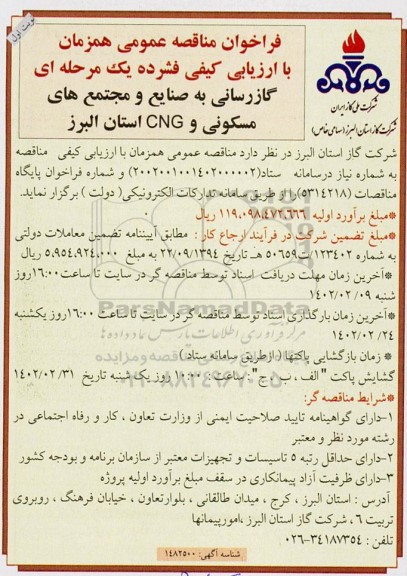 نوبت اول
فراخوان مناقصه عمومی همزمان
با ارزیابی کیفی فشرده یک مرحله ای
گازرسانی به صنایع و مجتمع های
مسکونی و CNG استان البرز
شرکت ملی گاز ایران
شرکت گاز استان البرز (سهامی خاص)
شرکت گاز استان البرز در نظر دارد مناقصه عمومی همزمان با ارزیابی کیفی مناقصه
به شماره نیاز درسامانه ستاد(۲۰۰۲۰۰۱۰۰۱۴۰۲۰۰۰۰۰۲) و شماره فراخوان پایگاه
مناقصات (۵۳۱۴۲۱۸) را از طریق سامانه تدارکات الکترونیکی( دولت ) برگزار نماید.
*مبلغ برآورد اولیه ۱۱۹,۰۹۸,۴۷۲,۶۶۶ ریال
*مبلغ تضمین شرکت در فرآیند ارجاع کار : مطابق آییننامه تضمین معاملات دولتی
به شماره ۱۲۳۴۰۲/ت۵۰۶۵۹ هـ تاریخ ۲۲/۰۹/۱۳۹۴ به مبلغ ۵,۹۵۴,۹۲۴,۰۰۰ ریال
*آخرین زمان مهلت دریافت اسناد توسط مناقصه گر در سایت تا ساعت ۱۶:۰۰روز
شنبه ۱۴۰۲/۰۲/۰۹
*آخرین زمان بارگذاری اسناد توسط مناقصه گر در سایت تا ساعت ۱۶:۰۰روز یکشنبه
۱۴۰۲/۰۲/۲۴
* زمان بازگشایی پاکتها ( ازطریق سامانه ستاد )
گشایش پاکت " الف ، ب ، ج " : ساعت ۱۰:۰۰ روز یک شنبه تاریخ ۱۴۰۲/۰۲/۳۱
*شرایط مناقصه گر:
۱-دارای گواهینامه تایید صلاحیت ایمنی از وزارت تعاون ، کار و رفاه اجتماعی در
رشته مورد نظر و معتبر
۲-دارای حداقل رتبه ۵ تاسیسات و تجهیزات معتبر از سازمان برنامه و بودجه کشور
۳-دارای ظرفیت آزاد پیمانکاری در سقف مبلغ برآورد اولیه پروژه
آدرس : استان البرز ، کرج ، میدان طالقانی ، بلوارتعاون ، خیابان فرهنگ ، روبروی
تربیت ۶ ، شرکت گاز استان البرز ،امورپیمانها
تلفن : ۳۴۱۸۷۳۵۴-۰۲۶
شناسه آگهی: ۱۴۸۲۵۰۰
ParsNamadData